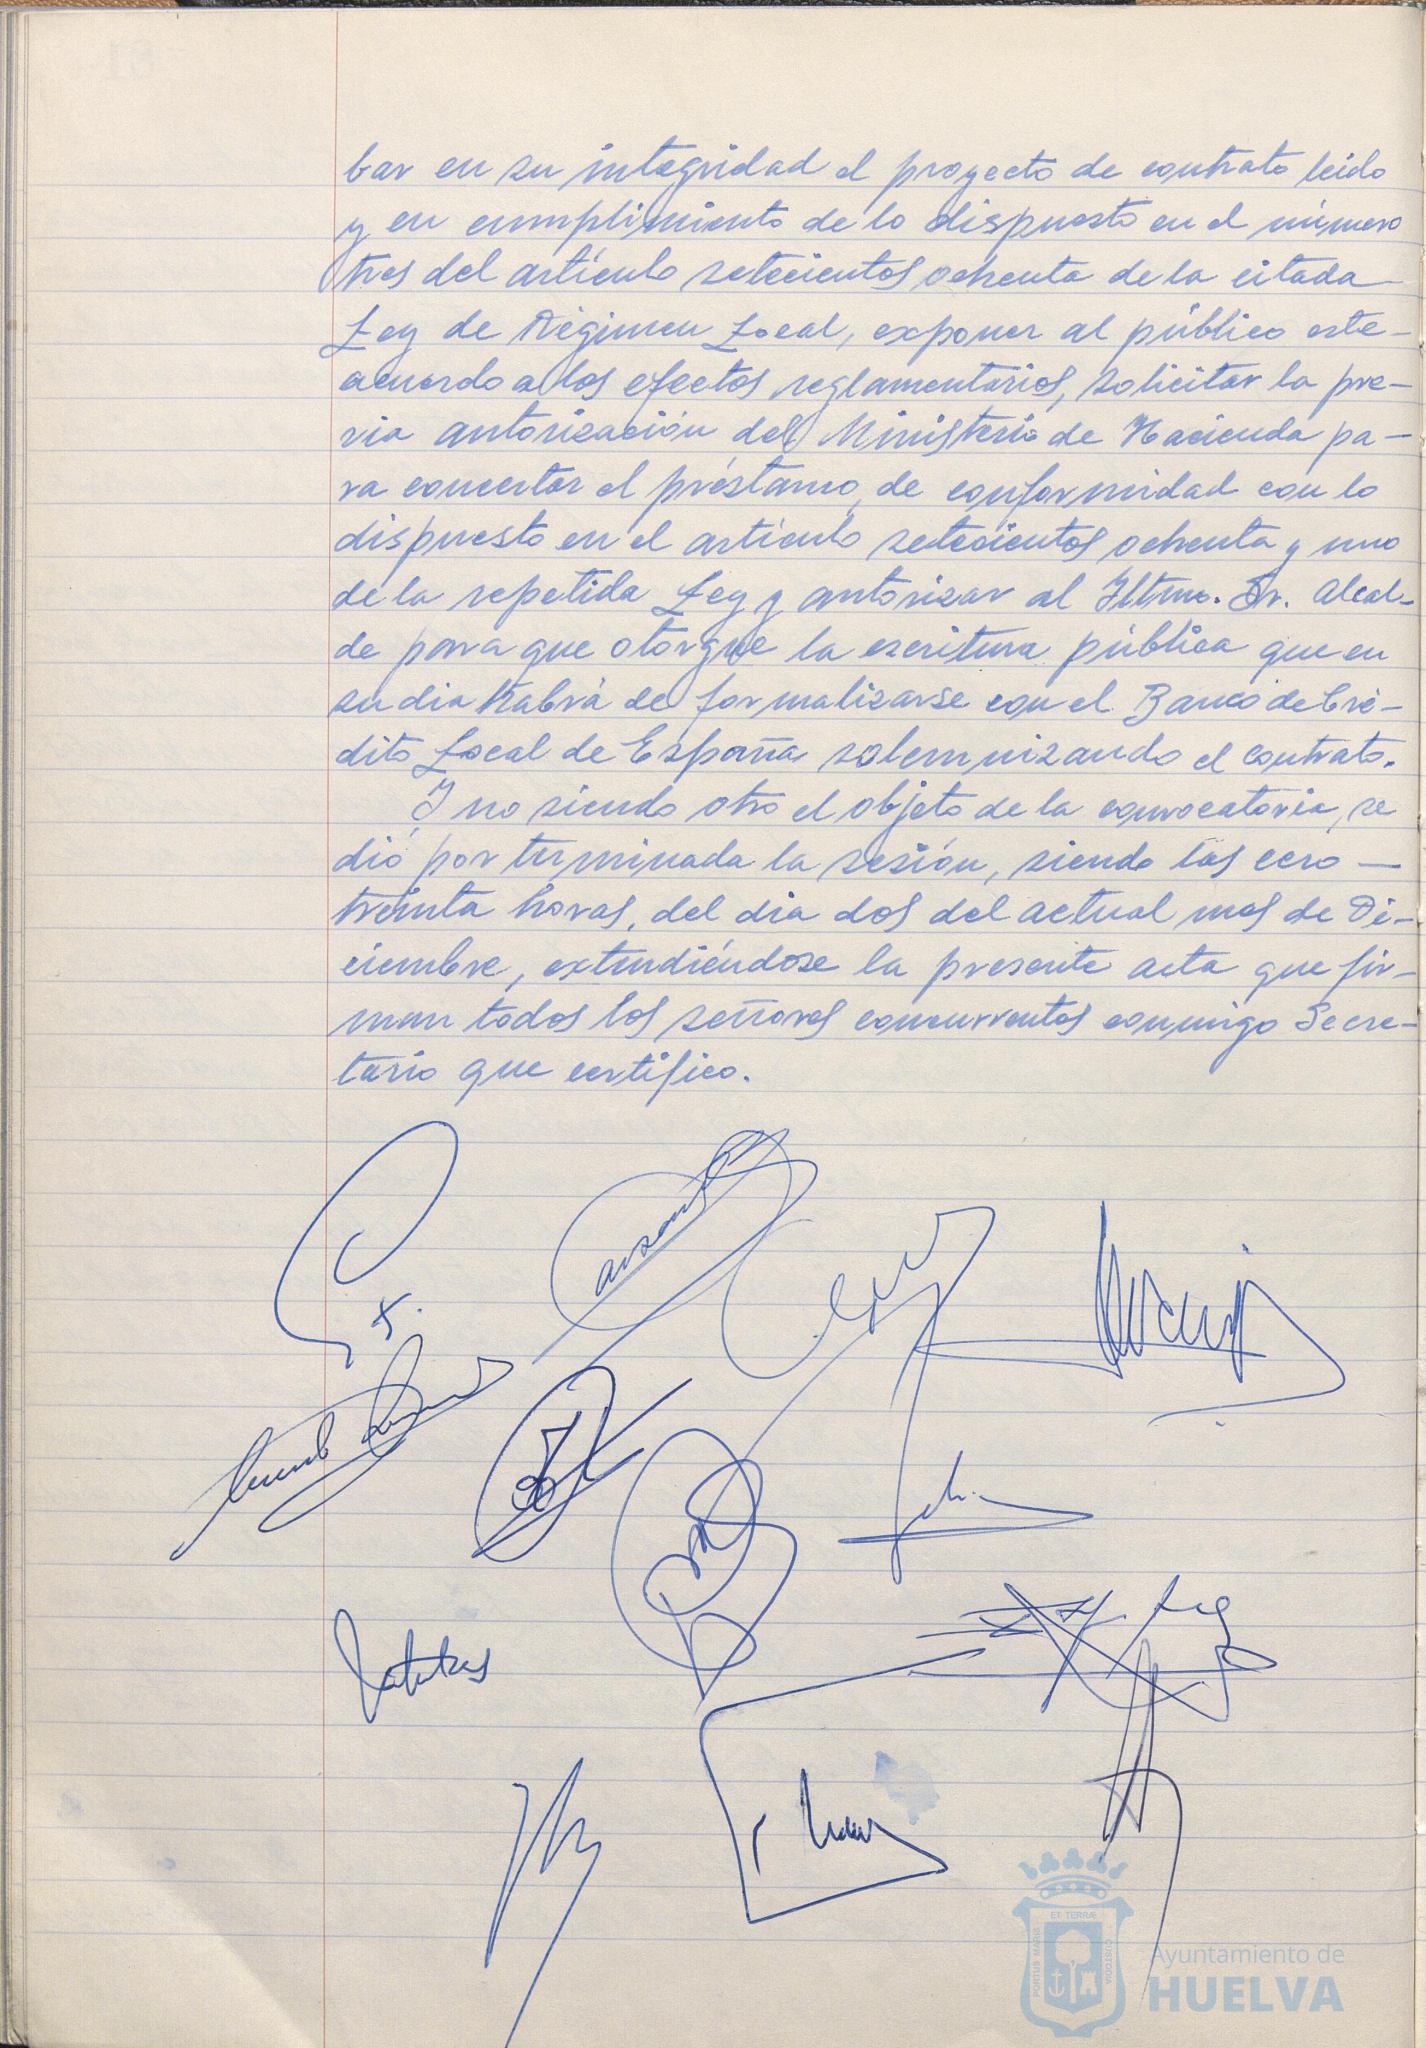 bar en su integridad el proyecto de contrato leido
y en cumplimiento de lo dispuesto en el número
tres del artículo setecientos ochenta de la citada
Ley de Régimen Local, exponer al público este
acuerdo a los efectos reglamentarios, solicitar la pre-
via autorización del Ministerio de Hacienda pa-
ra concertar el préstamo, de conformidad con lo
dispuesto en el artículo setecientos ochenta y uno
de la repetida Ley y autorizar al Iltmo. Sr. Alcal-
de para que otorgue la escritura pública que en
su dia habrá de formalizarse con el Banco de Cré-
dito Local de España solemnizando el contrato.
Y no siendo otro el objeto de la convocatoria, se
dió por terminada la sesión, siendo las cero
treinta horas, del dia dos del actual mes de Di-
ciembre, extendiéndose la presente acta que fir-
man todos los señores concurrentes conmigo Secre-
tario que certifico.
ET TERRAE
PORTUS MARIS
CUSTODIA
Ayuntamiento de
HUELVA